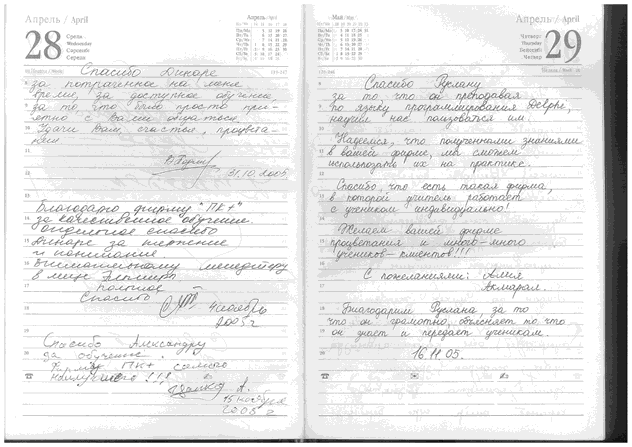 Апрель / April
28
Среда
Wednesday
Спасибо Динаре
за потраченное на меня
время, за доступное обучение,
за то что было просто при-
ятно с Вами общаться.
Удачи Вам, счастья, процвета-
ния
31.10.2005
Благодарю фирму "ПК+"
за качественное обучение.
Отдельное спасибо
Динаре за терпение
и понимание
Внимательному менеджеру
в лице
Большое
Спасибо
4 ноября
2005 г
Спасибо Александру
за обучение.
Фирме ПК+ самого
наилучшего !!!
А.
15 ноября
2005 г
Апрель / April
Май / May
Четверг
Thursday
29
Спасибо Руслану
за то что он преподавая
по языку программирования Делфи,
научил нас пользоваться им.
Надеемся, что полученными знаниями
в вашей фирме, мы сможем
использовать их на практике.
Спасибо, что есть такая фирма,
в которой учитель работает
с учеником индивидуально!
Желаем вашей фирме
процветания и много-много
учеников-клиентов!!!
С пожеланиями: Алия
Акмарал.
Благодарим Руслана, за то
что он грамотно, объясняет то что
он знает и передает ученикам.
16.11.05.